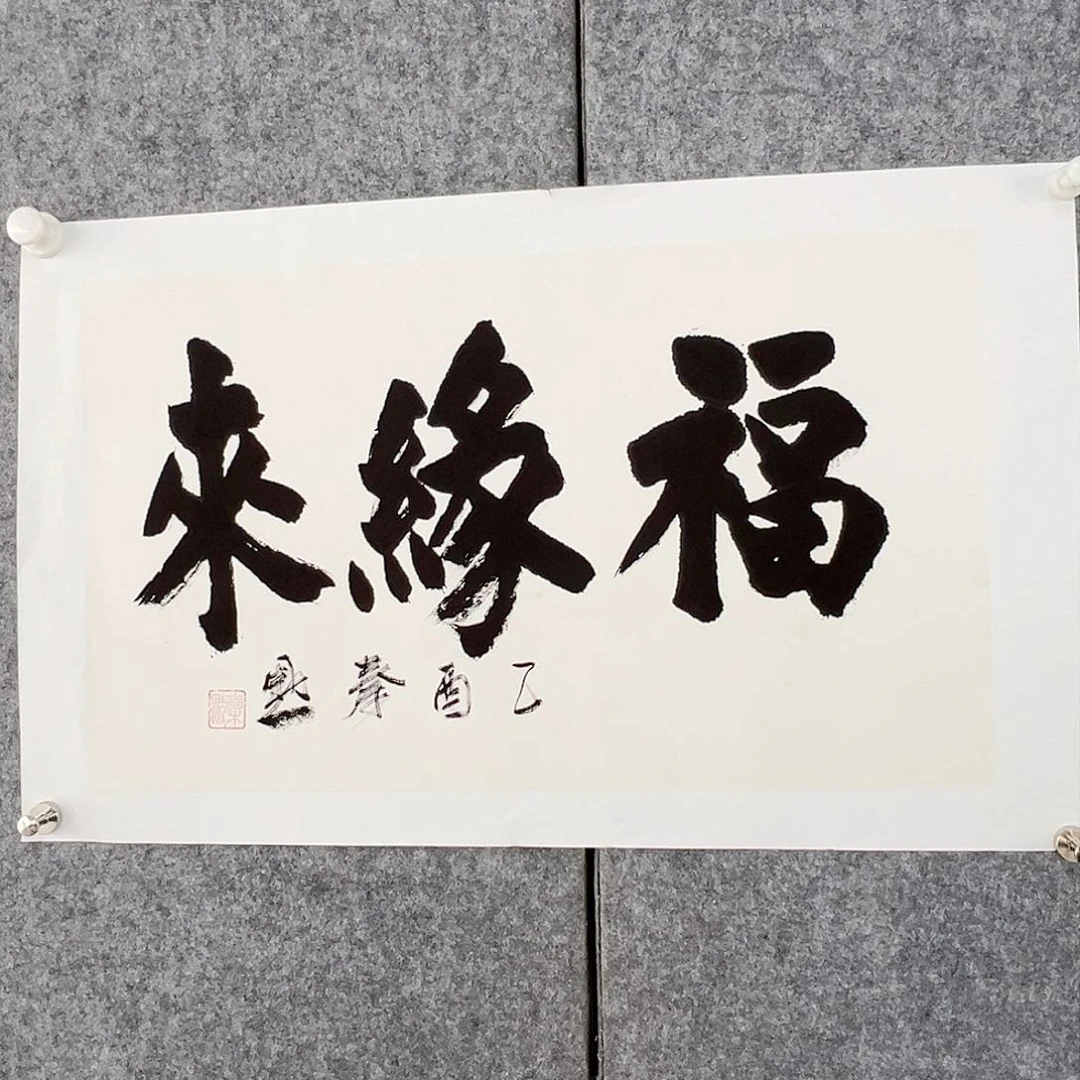 福緣來
乙酉